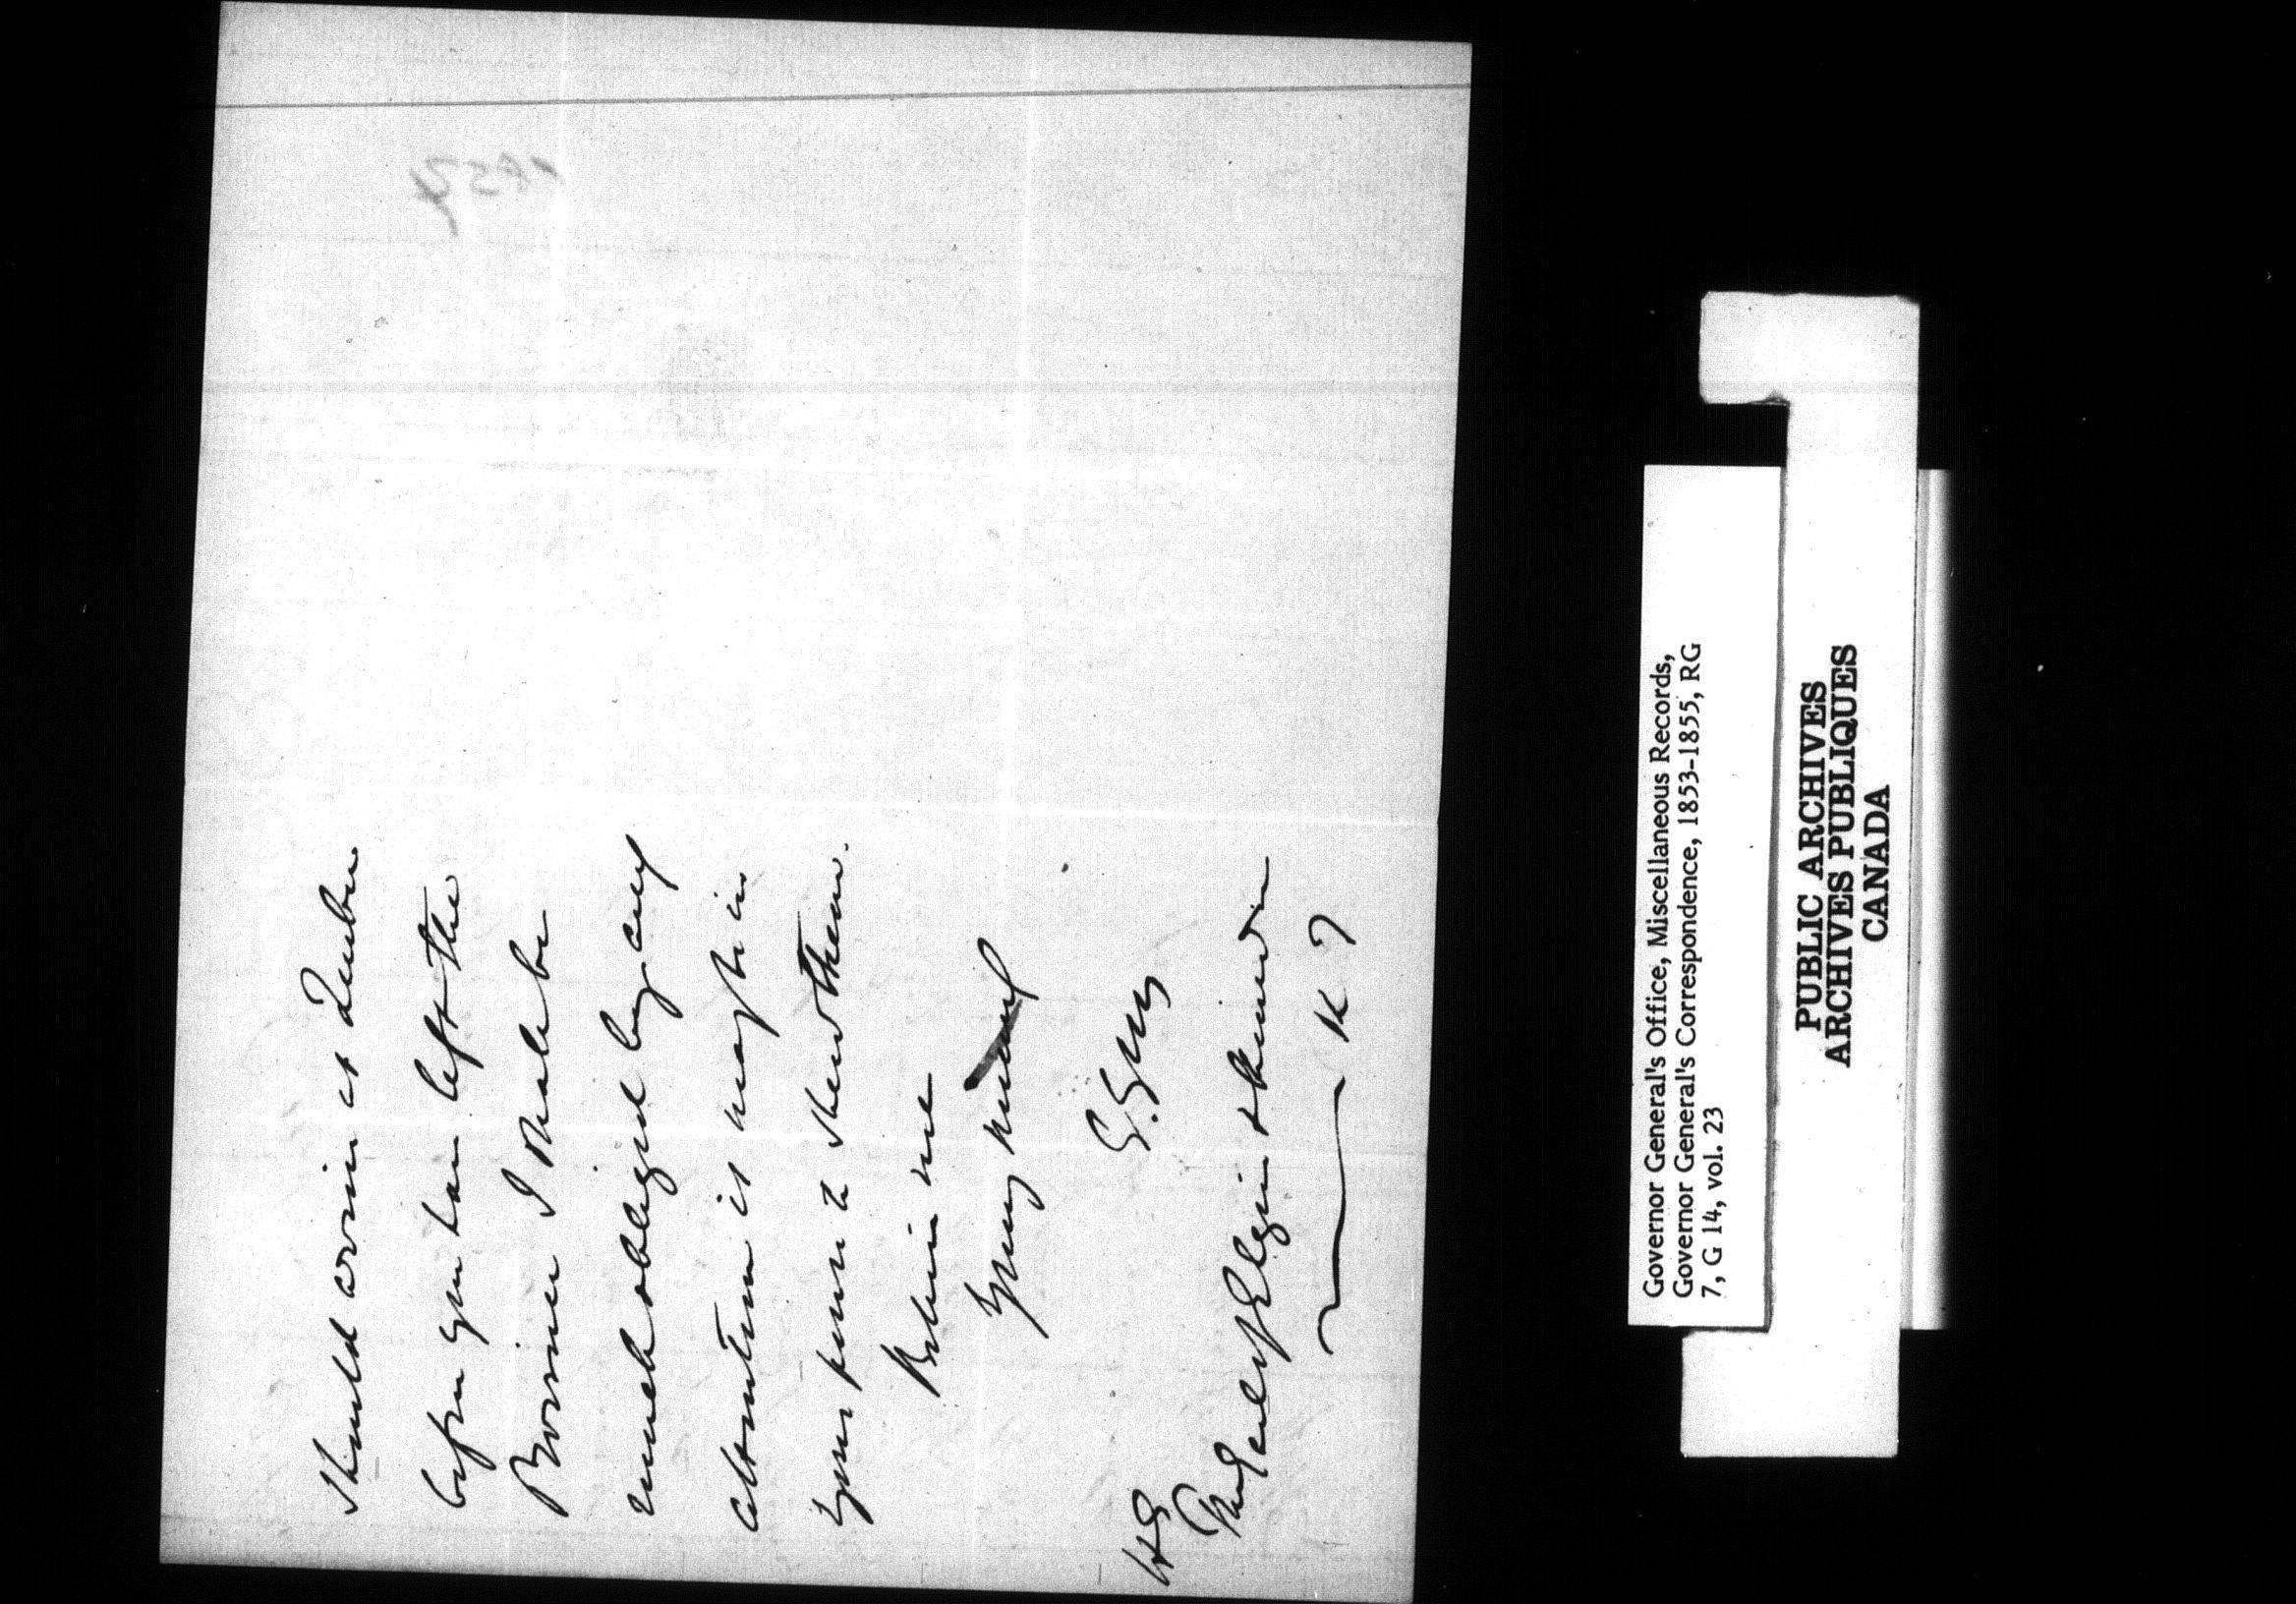 should arrive at Quebec
before you have left the
Province I shall be
much obliged by any
attention it may be in
your power to shew them.
Believe me
Yours
HE
The Earl of Elgin & Kincardine
K T
Governor General's Office, Miscellaneous Records,
Governor General's Correspondence, 1853-1855, RG
7, G 14, vol. 23
PUBLIC ARCHIVES
ARCHIVES PUBLIQUES
CANADA